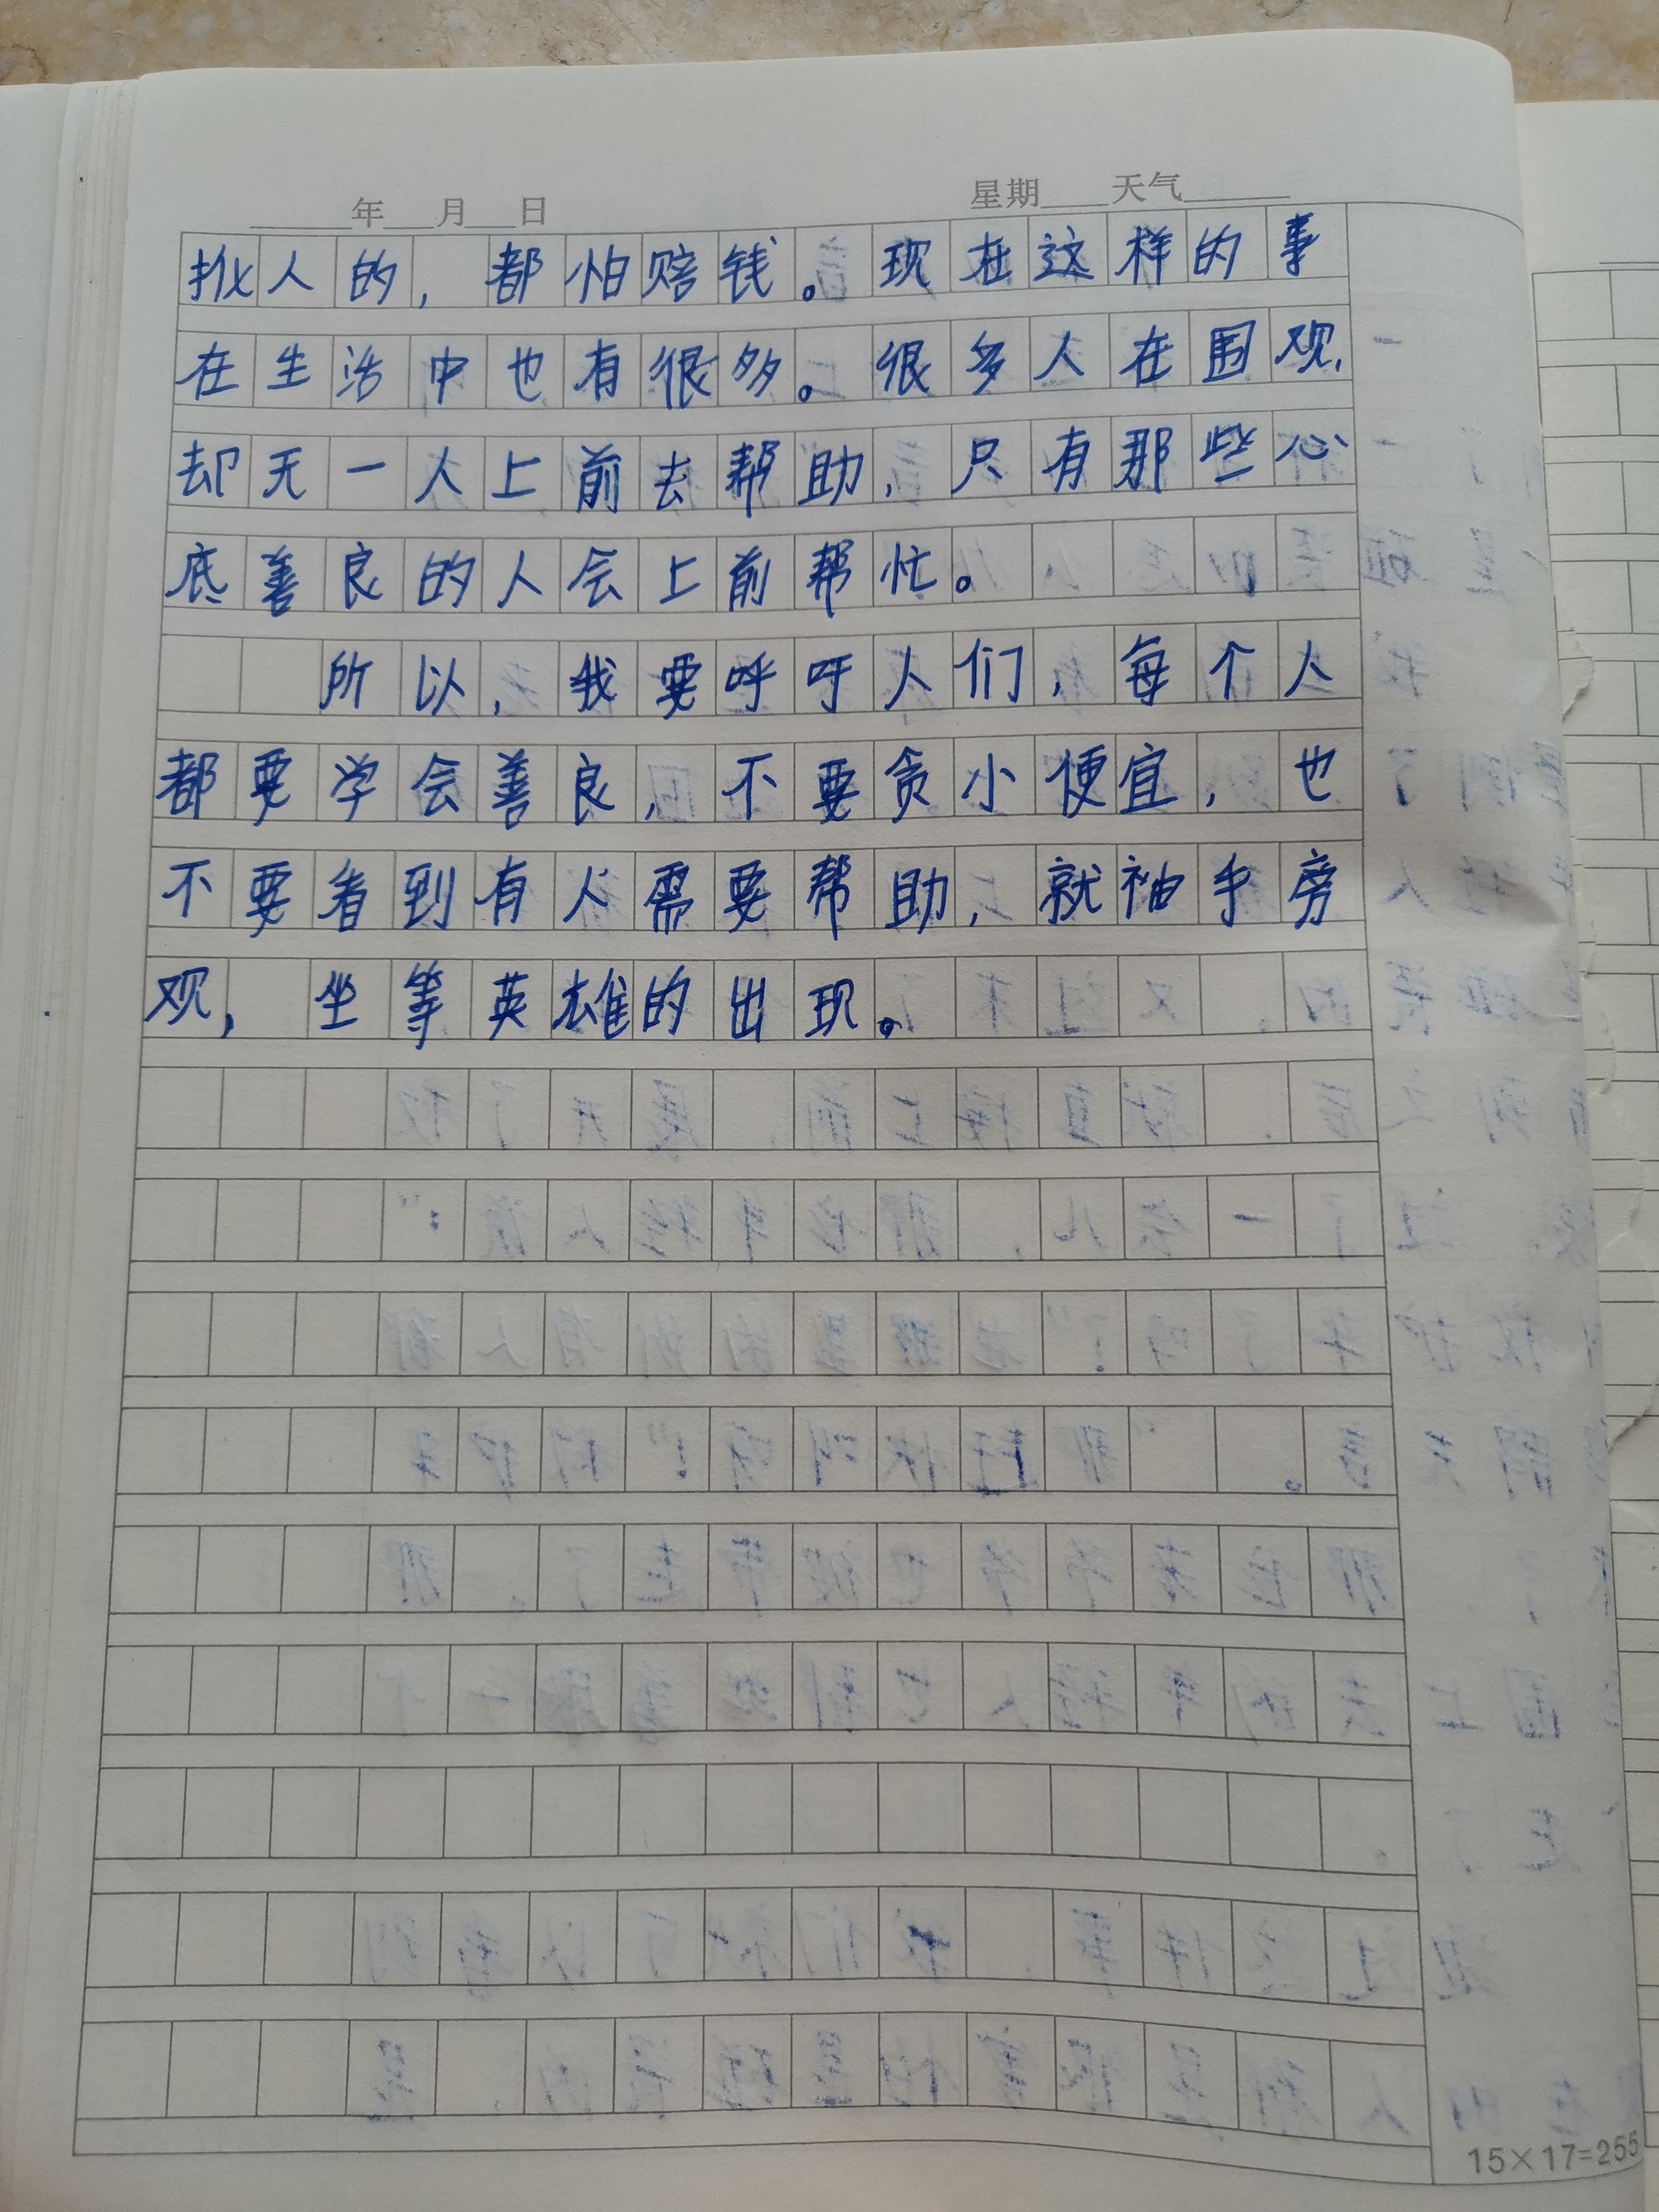 年 月 日 星期 天气
人的,都怕赔钱。现在这样的事
在生活中也有很多。很多人在围观,
却无一人上前去帮助,只有那些心
底善良的人会上前帮忙。
所以,我要呼吁人们,每个人
都要学会善良,不要贪小便宜,也
不要看到有人需要帮助,就袖手旁
观,坐等英雄的出现。
15×17=255